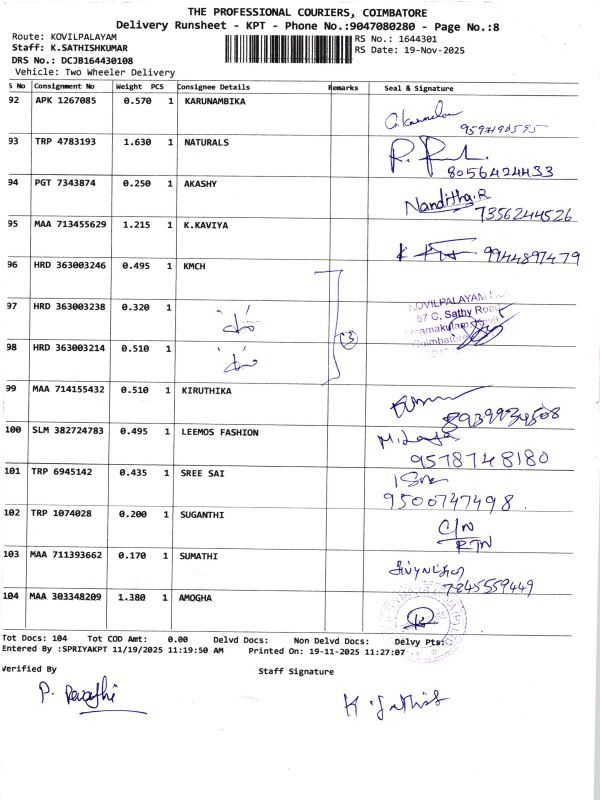 THE PROFESSIONAL COURIERS, COIMBATORE
Delivery Runsheet - KPT - Phone No.:9047080280 - Page No.:8
Route: KOVILPALAYAM
RS No.: 1644301
Staff: K.SATHISHKUMAR
RS Date: 19-Nov-2025
DRS No.: DCJB164430108
Vehicle: Two Wheeler Delivery
S No Consignment No Weight PCS Consignee Details Remarks Seal & Signature
92 APK 1267085 0.570 1 KARUNAMBIKA
93 TRP 4783193 1.630 1 NATURALS
8056424433
94 PGT 7343874 0.250 1 AKASHY
Nanditha.R
7356244526
95 MAA 713455629 1.215 1 K.KAVIYA
9944897479
96 HRD 363003246 0.495 1 KMCH
97 HRD 363003238 0.320 1
KOVILPALAYAM
67 C, Sathy Road
98 HRD 363003214 0.510 1
3
99 MAA 714155432 0.510 1 KIRUTHIKA
100 SLM 382724783 0.495 1 LEEMOS FASHION
9578748180
101 TRP 6945142 0.435 1 SREE SAI
9500747498
102 TRP 1074028 0.200 1 SUGANTHI
C/N
RTN
103 MAA 711393662 0.170 1 SUMATHI
7845559449
104 MAA 303348209 1.380 1 AMOGHA
Tot Docs: 104 Tot COD Amt: 0.00 Delvd Docs: Non Delvd Docs: Delvy Pts:
Entered By :SPRIYAKPT 11/19/2025 11:19:50 AM Printed On: 19-11-2025 11:27:07
Verified By Staff Signature
P. Revathi
K. Sathish